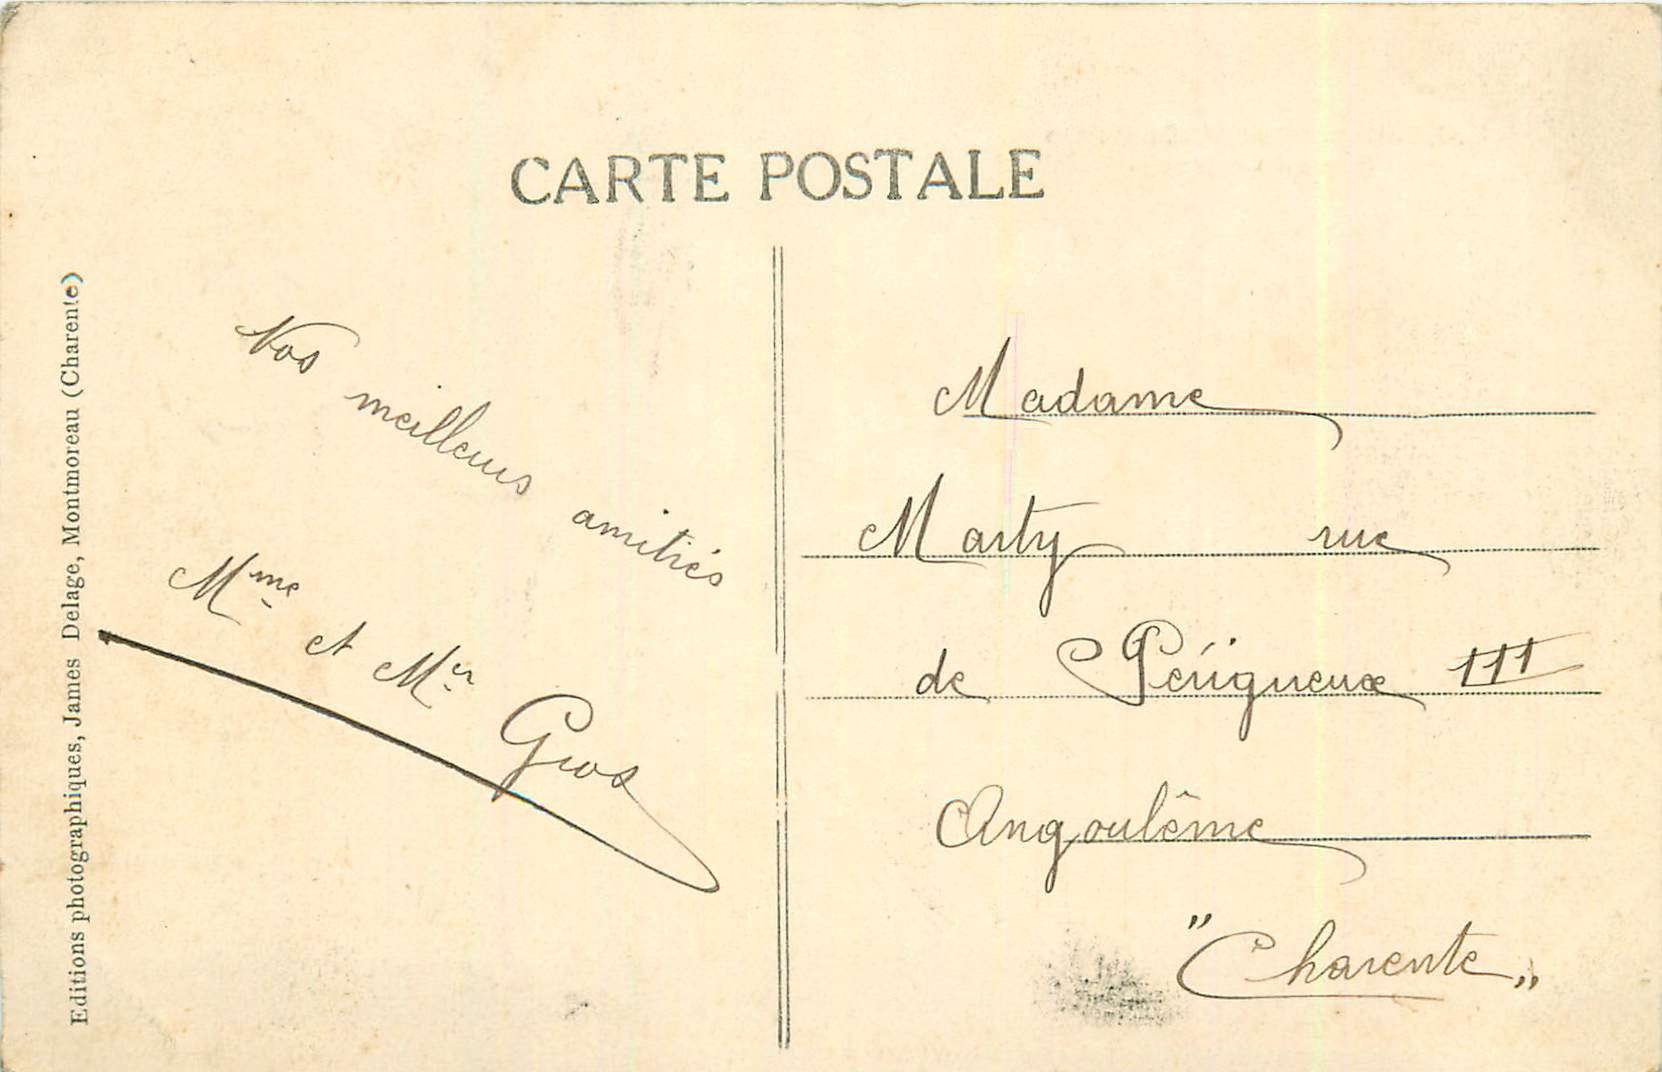 CARTE POSTALE
Editions photographiques, James Delage, Montmoreau (Charente)
Nos meilleurs amitiés
Mme et Mr Gros
Madame
Marty rue
de Périgueux 111
Angoulême
"Charente„